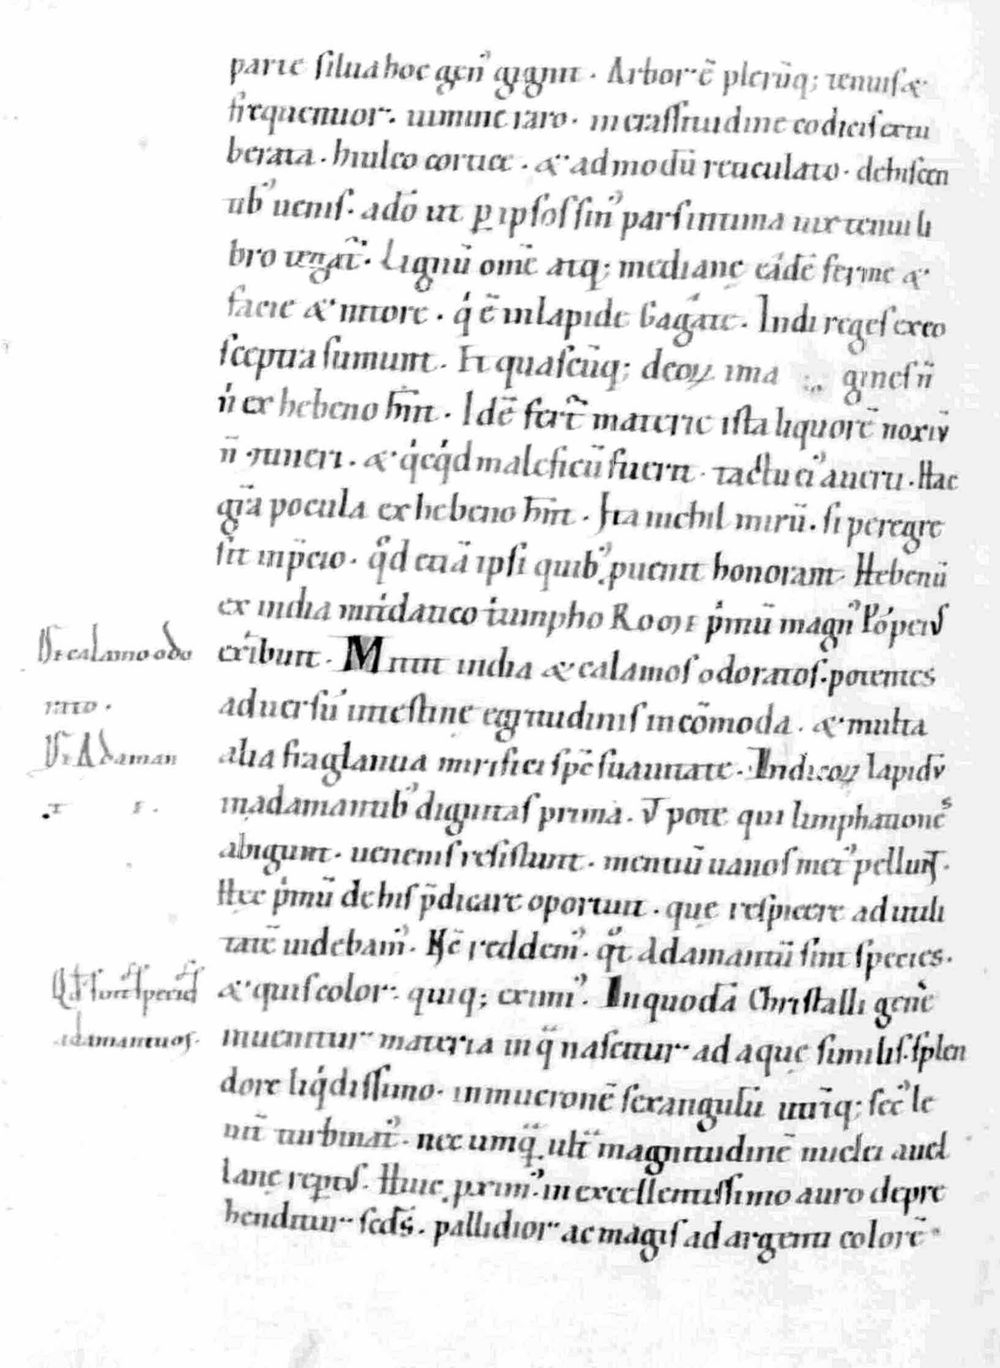 parte silua hoc gen᾽ gignit. Arbor ē plerūq; tenuis &
frequentior. uimine raro. in crassitudine codicis extu
berata. hiulco cortice. & admodū reticulato. dehiscen
tib᾽ uenis. adō ut p̱ ipsos sin᾽ pars intima uix tenui li
bro tegat᷑. Lignū om̄e atq; mediane eādē ferme &
facie & nitore. q́ ē in lapide Gagate. Indi reges ex eo
sceptra sumunt. Et quascūq; deoꝝ ima gines n̄
n̄ ex hebeno hn̄t. Idē fert̃ materie ista liquorē noxiū
n̄ tineri. & q́cq́d maleficū fuerit. tactu ei᾽ auerti. Hac
gr̄a pocula ex hebeno hn̄t. Ita nichil mirū. si peregre
sit in p̄cio. qd̊ etiā ipsi quib᾽ puenit honorant. Hebenū
ex india mitridatico triumpho Rome p̍mū magn᾽ Pópeiꝰ
exibuit. Mittit india & calamos odoratos. potentes
De calamo odo
aduersū intestine egritudinis incōmoda. & multa
rato.
alia fraglantia mirifici spc̄ suauitate. Indicoꝝ lapidū
De Adaman
in adamantib᾽ dignitas prima. Vt pote qui limphationes
abigunt. uenenis resistunt. mentiū uanos met᾽ pellunt.
Hec p̍mū de his p̄dicare oportuit. que respicere ad utili
tatē uidebam᾽. Nc̄ reddem᾽. qt̊ Adamantū sint species.
& quis color. quiq; eximi᾽. In quodā Christalli gen̄e
Qd̊ sunt species
inuenitur materia in q̄ nascitur ad aque similis. splen
adamantuos.
dore liq́dissimo. in mucronē sexangulū utriq; sec᾽ le
nit̄ turbinat᾽. nec umq̄ ult̄ magnitudinē nuclei auel
lane reptꝰ. Huic pxim᾽ in excellentissimo auro depre
henditur scd̄s. pallidior ac magis ad argenti colorē